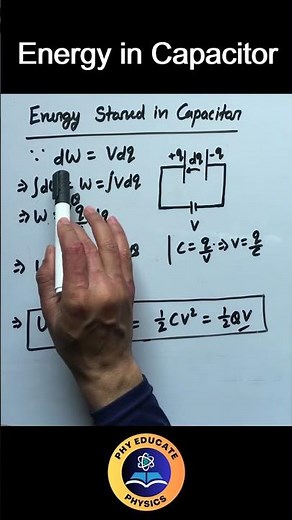 Energy in Capacitor
Energy Stored in Capacitor
∵ dW = Vdq
+q dq -q
⇒ W = ∫Vdq
⇒ W =
V
C = q/V ⇒ V = q/C
⇒
⇒ U = ½CV² = ½QV
PHY EDUCATE
PHYSICS